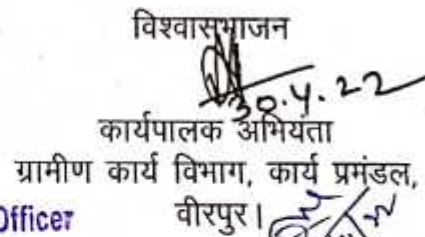 विश्वासभाजन
30.4.22
कार्यपालक अभियंता
ग्रामीण कार्य विभाग, कार्य प्रमंडल,
Officer वीरपुर।